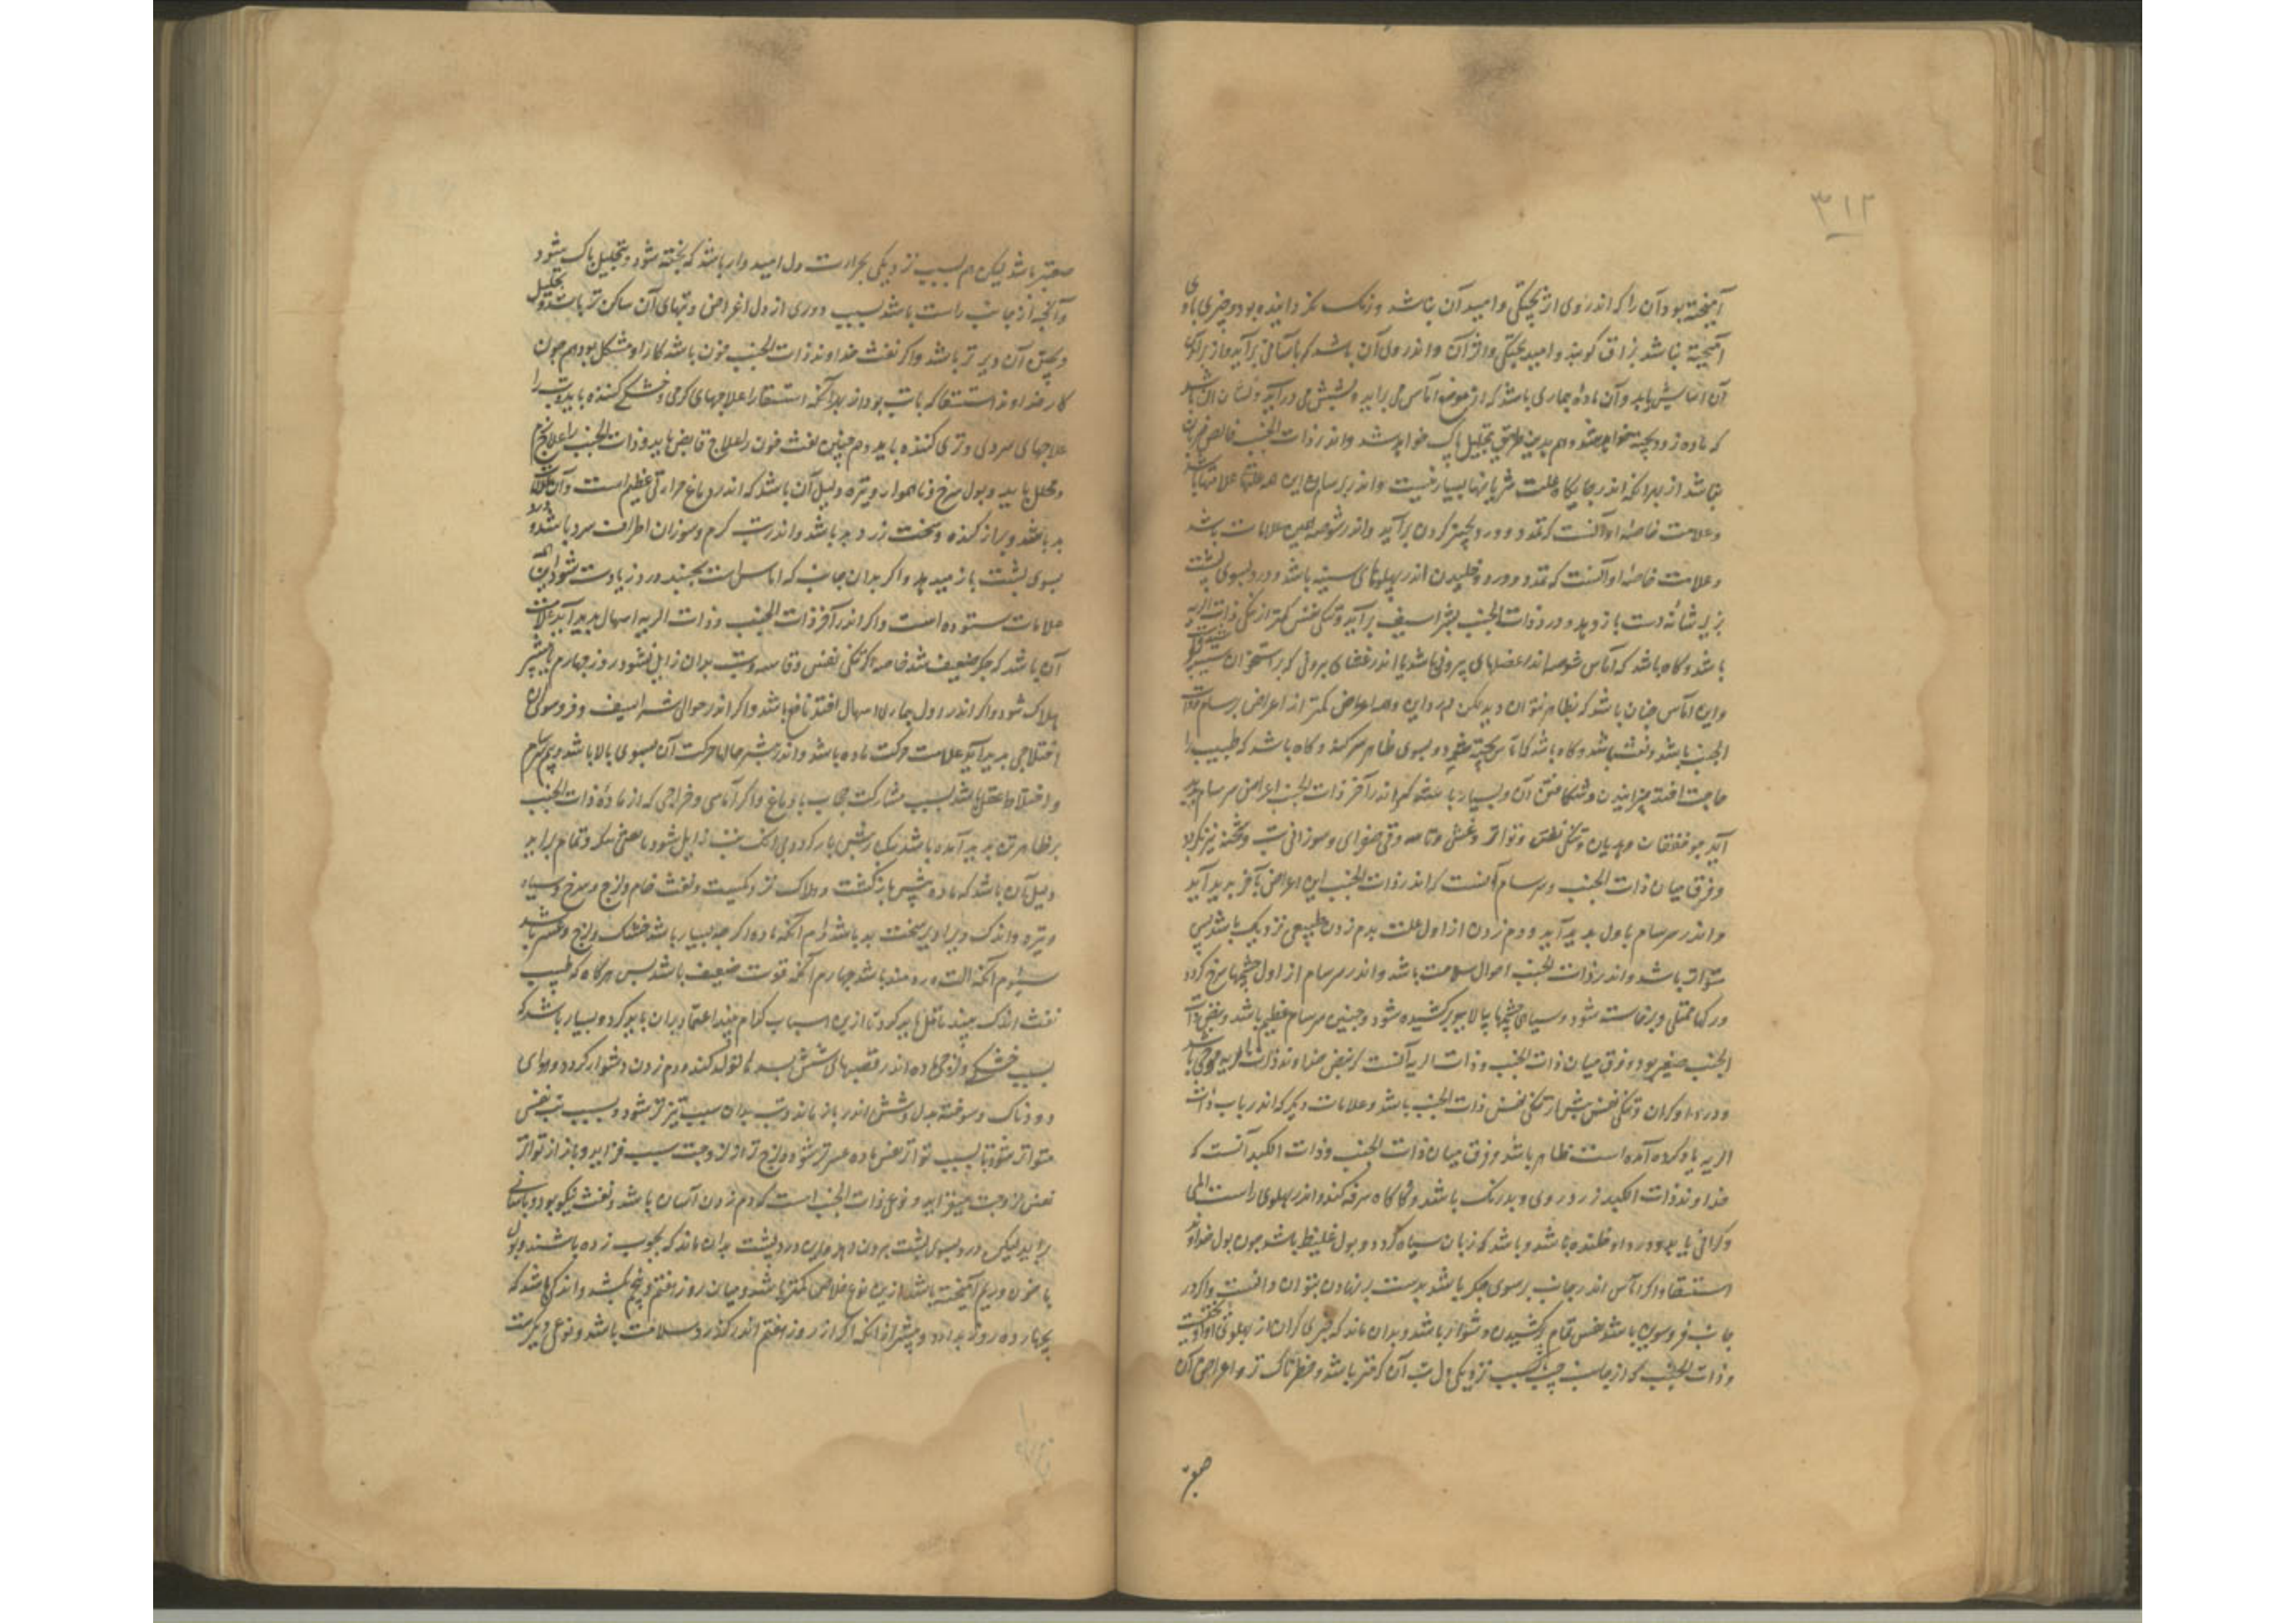 ۳۱۲
آمیخته بود و آن را که اندر وی اثر پختگی و امید آن نباشد و رنگ نگردانیده بود و چیزی با وی
آمیخته نباشد بزاق گویند و امید پختگی و اثر آن و اندر وی آن باشد که بآسانی برآید و از برآمدن
آن آسایش یابد و آن ماده بیماری باشد که از موضع آماس می برآید و بشش می درآید و نشان آن باشد
که ماده زود پخته خواهد شد و هم بدین طریق بتحلیل پاک خواهد شد و اندر ذات الجنب خالص ضربان
نباشد از بهر آنکه اندر جایگاه علت شریانها بسیار نیست و اندر برسام این همه علامتها باشد
و علامت خاصه او آنست که تمدد و درد بچنبر گردن برآید و اندر شوصه همین علامات باشد
و علامت خاصه او آنست که تمدد و درد و خلیدن اندر پهلوهای سینه باشد و درد بسوی پشت
بزیر شانه دست باز دهد و درد ذات الجنب بشراسیف برآید و تنگی نفس کمتر از تنگی ذات الریه
باشد و گاه باشد که آماس شوصه اندر عضلهای بیرونی باشد یا اندر غشای بیرونی که بر استخوان
و این آماس چنان باشد که بظاهر بتوان دید لیکن درد این و همه اعراض کمتر از اعراض برسام و ذات
الجنب باشد و نفث نباشد و گاه باشد که آماس پخته شود و بسوی ظاهر سر کند و گاه باشد که طبیب را
حاجت افتد بپزانیدن و شکافتن آن و بسیار باشد که اندر آخر ذات الجنب اعراض سرسام پدید
آید چو خفقان و هذیان و تنگی نفس و تواتر و غشی و تاسه و قی صفرای و سوزانی تب و
و فرق میان ذات الجنب و سرسام آنست که اندر ذات الجنب این اعراض بآخر پدید آید
و اندر سرسام باول پدید آید و دم زدن از اول علت بدم زدن طبیعی نزدیک باشد پس
متواتر باشد و اندر ذات الجنب احوال سلامت باشد و اندر سرسام از اول چشمها سرخ گردد
و رگها ممتلی و برخاسته شود و سیاهی چشمها ببالا بر کشیده شود و نبض سرسام عظیم باشد و نبض ذات
الجنب صغیر بود و فرق میان ذات الجنب و ذات الریه آنست که نبض خداوند ذات الریه موجی باشد
و درد او گران و تنگی نفس بیش از تنگی نفس ذات الجنب باشد و علامات دیگر که اندر باب ذات
الریه یاد کرده آمده است ظاهر باشد و فرق میان ذات الجنب و ذات الکبد آنست که
خداوند ذات الکبد زرد روی و بد رنگ باشد و گاه گاه سرفه کند و اندر پهلوی راست المی
و گرانی یابد و درد او خلنده نباشد و باشد که زبان سیاه گردد و بول غلیظ باشد چون بول خداوند
استسقا و اگر آماس اندر جانب برسوی جگر باشد بدست برنهادن بتوان دانست و اگر در
جانب فروسوین باشد نفس تمام برکشیدن دشوار باشد و بدان ماند که چیزی گران از پهلوی او آویخته است
و ذات الجنب که از جانب چپ بسبب نزدیکی دل تب آن گرمتر باشد و خطرناک تر و اعراض آن
صعبتر
صعبتر باشد لیکن هم بسبب نزدیکی بحرارت دل امیدوار باشد که پخته شود و بتحلیل پاک شود
و آنچه از جانب راست باشد بسبب دوری از دل اعراض و تبهای آن ساکن تر باشد و تحلیل
و پختن آن دیرتر باشد و اگر نفث خداوند ذات الجنب خون باشد کار او مشکل بود هم چون
کار خداوند استسقا که با تب بود از بهر آنکه استسقا را علاجهای گرمی و خشکی کننده باید و تب را
علاجهای سردی و تری کننده باید و هم چنین نفث خون را علاج قابض باید و ذات الجنب را علاج نرم
و محلل باید و بول سرخ و ناهموار و تیره دلیل آن باشد که اندر دماغ حرارتی عظیم است و آن علامات
بد باشد و براز گنده و سخت زرد بد باشد و اندر تب گرم و سوزان اطراف سرد باشد و درد
بسوی پشت باز میدهد و اگر بدان جانب که آماس است بخسبد درد زیادت شود این
علامات ستوده است و اگر اندر آخر ذات الجنب و ذات الریه اسهال پدید آید علامت
آن باشد که جگر ضعیف شد خاصه اگر تنگی نفس و تاسه و تب بدان زایل نشود روز چهارم یا پیشتر
هلاک شود و اگر اندر اول بیماری اسهال افتد نافع باشد و اگر اندر حوالی شراسیف و فروسوی آن
اختلاجی پدید آید علامت حرکت ماده باشد و اندر بیشتر حالها حرکت آن بسوی بالا باشد و بیم سرسام
و اختلاط عقل باشد بسبب مشارکت حجاب با دماغ و اگر آماسی و خراجی که از ماده ذات الجنب
بر ظاهر تن پدید آمده باشد یک ره پس باز گردد بی آنک تب زایل شود یا نفثی نیک و تمام برآید
دلیل آن باشد که ماده پس باز گشت و هلاک نزدیکست و نفث خام و لزج و سرخ و سیاه
و تیره و اندک و دیرا دیر سخت بد باشد دوم آنکه ماده اگر چه بسیار باشد خشک و لزج و عسر باشد
سیوم آنکه آلت دردمند باشد چهارم آنکه قوت ضعیف باشد پس هرگاه که طبیب
نفث اندک بیند تامل باید کرد تا ازین اسباب کدام بیند اعتماد بران باید کرد و بسیار باشد که
بسبب خشکی و لزجی ماده اندر قصبهای شش سده ها تولد کند و دم زدن دشوار گردد و هوای
دودناک و سوخته بدل و شش اندر باز ماند و تب بدان سبب تیزتر شود و بسبب تب نفس
متواتر شود تا بسبب تواتر نفس ماده عسرتر شود و لزج تر و از لزوجت سبب فزاید و باز از تواتر
نفس لزوجت میفزاید و نوعی ذات الجنب است که دم زدن آسان باشد و نفث نیکو بود و بآسانی
برآید لیکن درد بسوی پشت بیرون دهد و این درد پشت بدان ماند که بچوب زده باشند و بول
با خون و ریم آمیخته باشد ازین نوع خلاص کمتر باشد و میان روز هفتم و پنجم بکشد و اندکی باشد که
بچهارده روز بدارد و بیشتر از آنکه اگر از روز هفتم اندر گذرد سلامت باشد و نوعی دیگرست